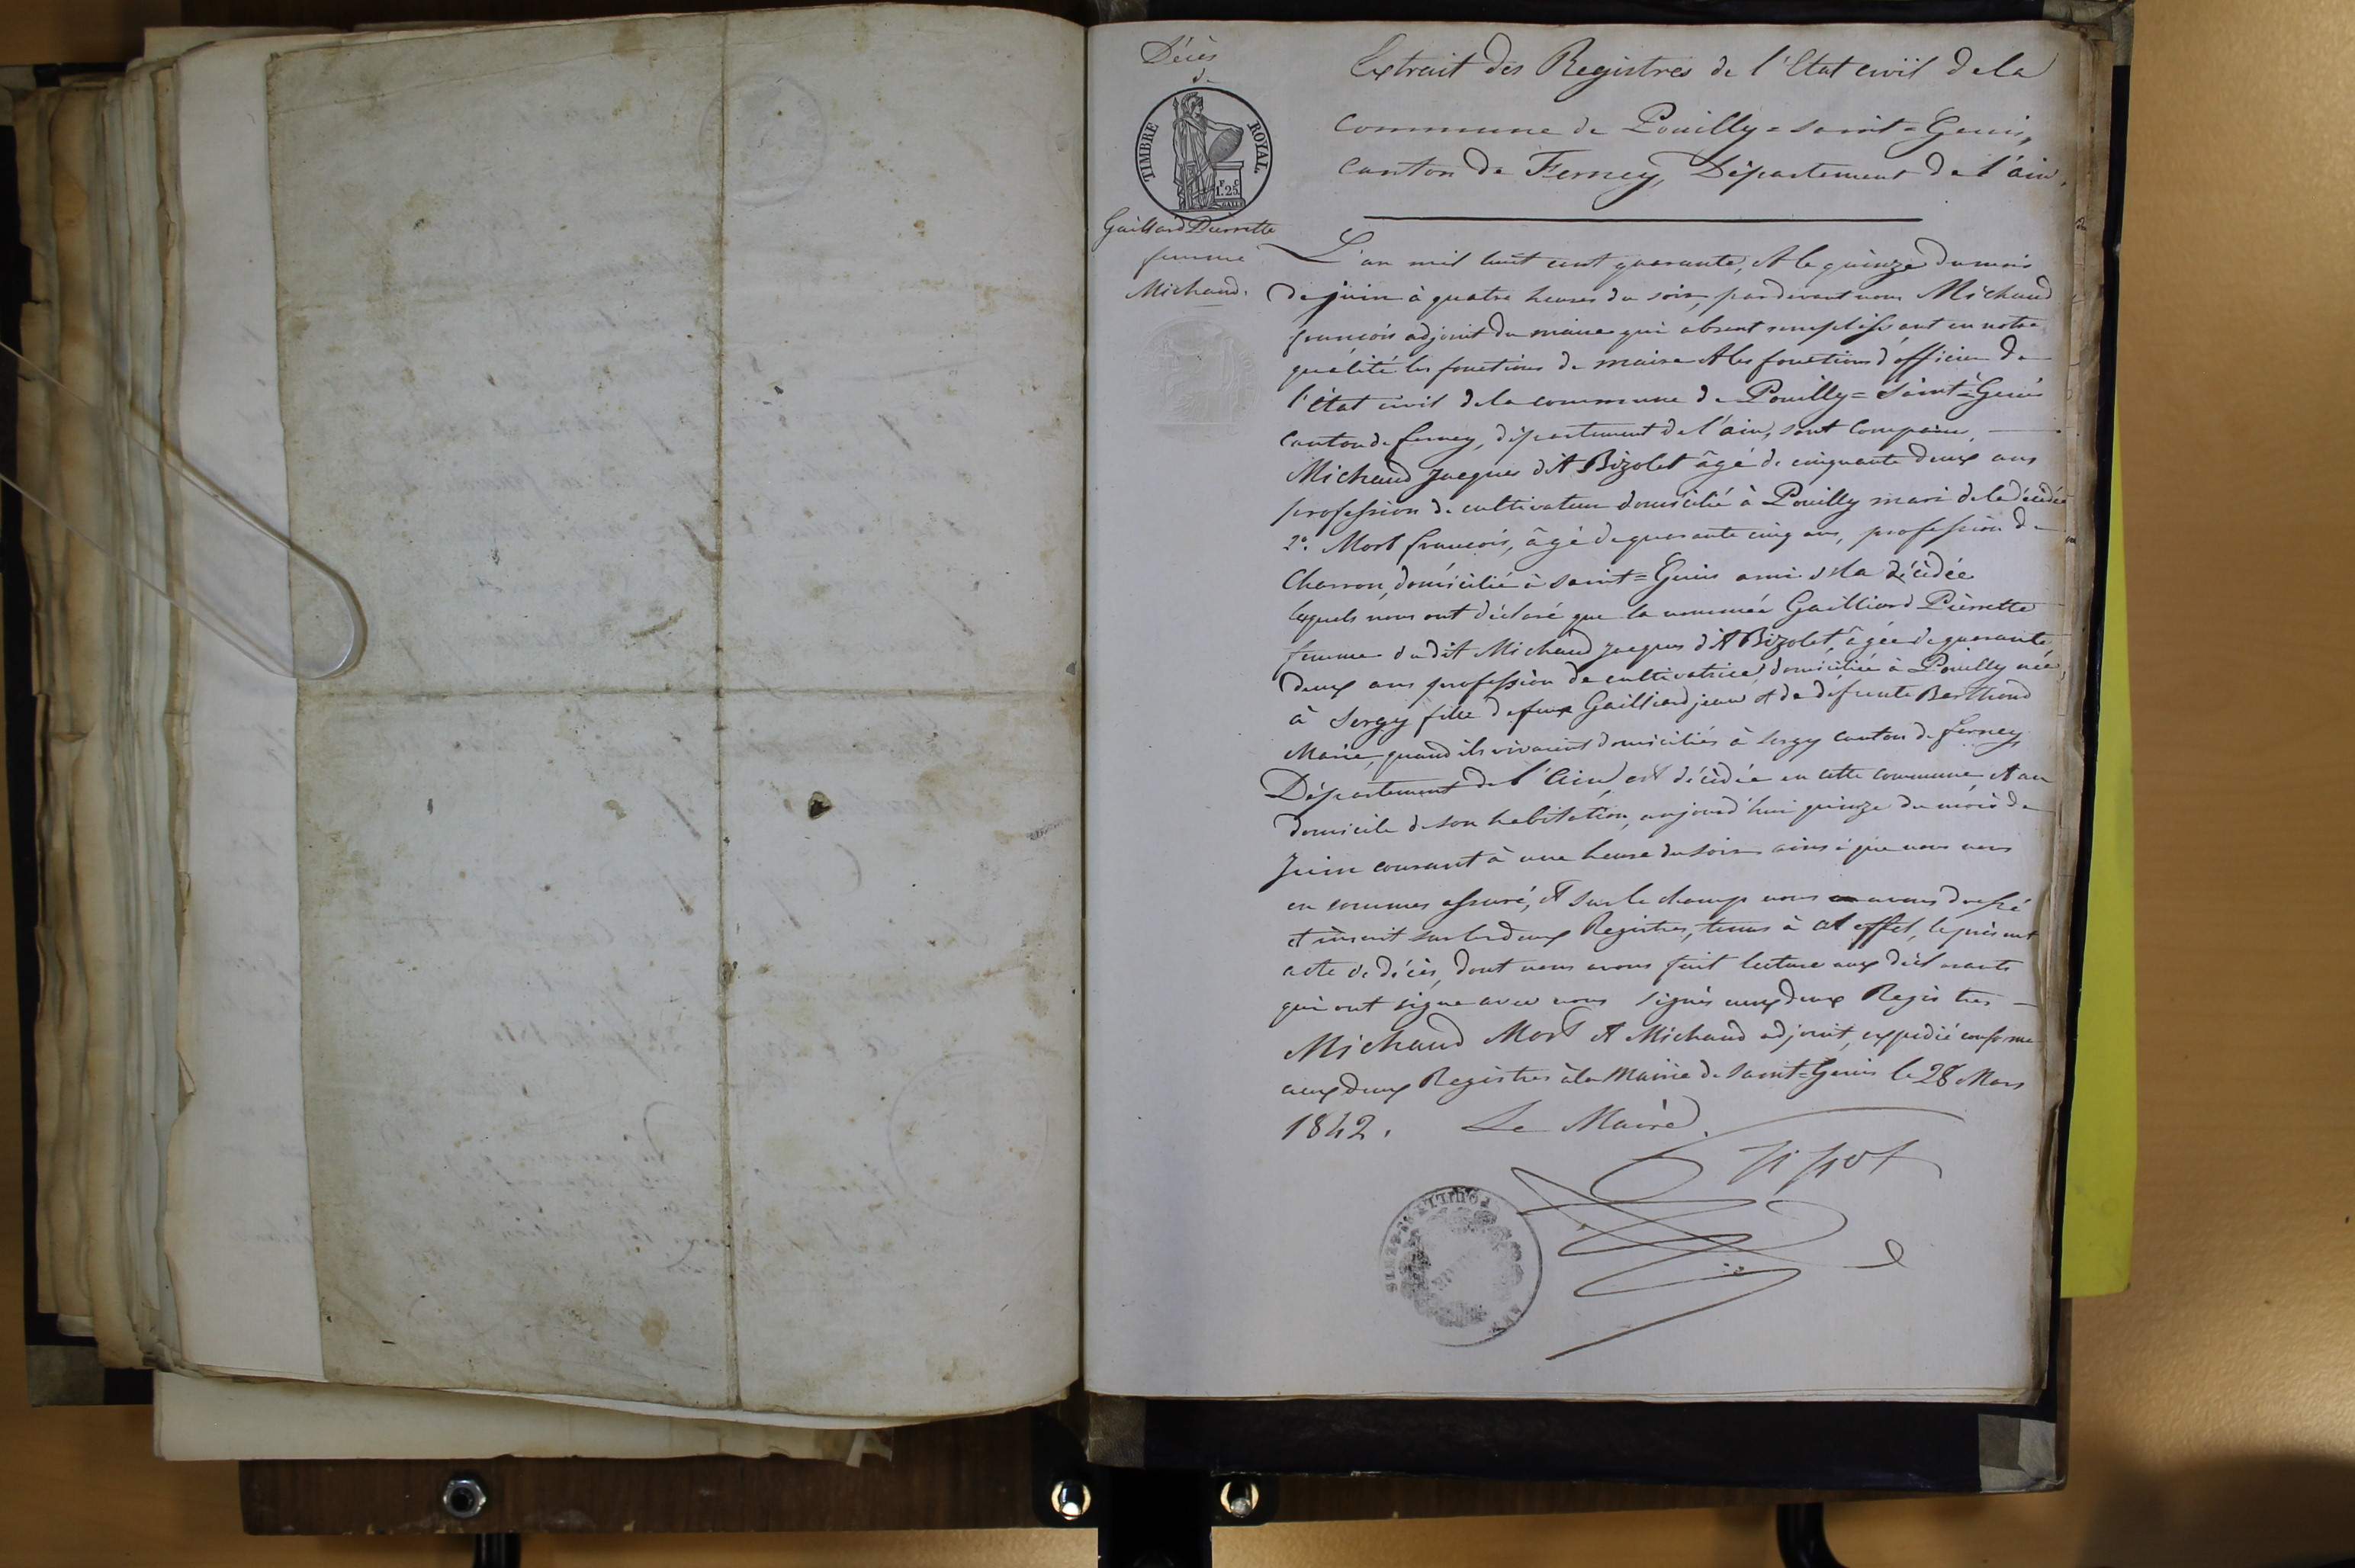 Décès
de
TIMBRE ROYAL
1.25
Gaillard Pierrette
femme
Michaud.
Extrait des Registres de l'Etat civil de la
Commune de Pouilly=saint=Genis,
Canton de Ferney, Département de l'ain.
L'an mil huit cent quarante, et le quinze du mois
de juin à quatre heures du soir, pardevant nous Michaud
francois adjoint du maire qui absent remplissant en notre
qualité les fonctions de maire et les fonctions d'officier de
l'état civil de la commune de Pouilly=Saint=Genis
Canton de ferney, département de l'ain, sont Comparu,
Michaud Jacques dit Bizolet âgé de cinquante deux ans
profession de cultivateur domicilié à Pouilly mari de la décédée
2°. Mort francois, âgé de quarante cinq ans, profession de
Charron, domicilié à saint=Genis ami de la décédée
lesquels nous ont déclaré que la nommée Gailliard Pierrette
femme du dit Michaud Jacques dit Bizolet, âgée de quarante
deux ans profession de cultivatrice, domiciliée à Pouilly née
à Sergy fille de feux Gailliard jean et de defunte Barthond
Marie, quand ils vivaient domiciliés à Sergy canton de ferney
Département de l'Ain, est décédée en cette commune et au
domicile de son habitation, aujourd'hui quinze du mois de
Juin courant à une heure du soir ainsi que nous nous
en sommes assuré, et sur le champ nous en avons dressé
et inscrit sur les deux Registres, tenus à cet effet, le présent
acte de décès, dont nous avons fait lecture aux déclarants
qui ont signe avec nous signés aux deux Registres
Michaud Mort et Michaud adjoint, expedié conforme
aux deux Registres à la Mairie de Saint=Genis le 28 Mars
1842. Le Maire